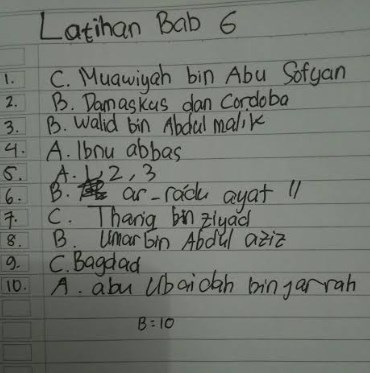 Latihan Bab 6
1. C. Muawiyah bin Abu Sofyan
2. B. Damaskus dan Cordoba
3. B. Walid bin Abdul malik
4. A. Ibnu abbas
5. A. 1, 2, 3
6. B. ar-radu ayat 11
7. C. Thariq bin ziyad
8. B. Umar bin Abdul aziz
9. C. Bagdad
10. A. abu Ubaidah bin jarrah
B = 10